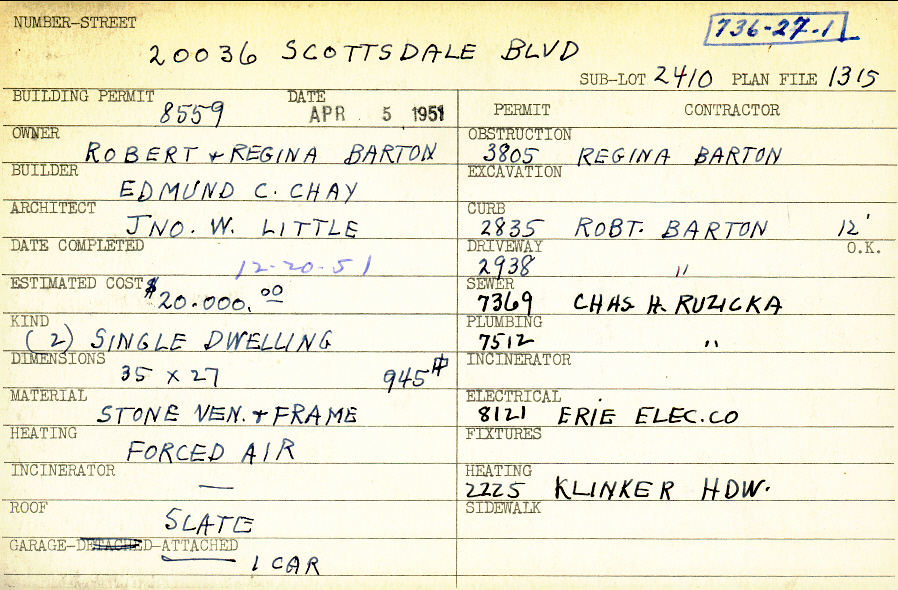 NUMBER-STREET
736-27-1
20036 SCOTTSDALE BLVD
SUB-LOT 2410 PLAN FILE 1315
BUILDING PERMIT 8559 DATE APR 5 1951
OWNER ROBERT + REGINA BARTON
BUILDER EDMUND C. CHAY
ARCHITECT JNO. W. LITTLE
DATE COMPLETED 12-20-51
ESTIMATED COST $20.000.00
KIND (2) SINGLE DWELLING
DIMENSIONS 35 X 27 945#
MATERIAL STONE VEN. + FRAME
HEATING FORCED AIR
INCINERATOR —
ROOF SLATE
GARAGE-DETACHED-ATTACHED 1 CAR
PERMIT CONTRACTOR
OBSTRUCTION 3805 REGINA BARTON
EXCAVATION
CURB 2835 ROBT. BARTON 12'
DRIVEWAY 2938 " O.K.
SEWER 7369 CHAS H. RUZICKA
PLUMBING 7512 "
INCINERATOR
ELECTRICAL 8121 ERIE ELEC.CO
FIXTURES
HEATING 2225 KLINKER HDW.
SIDEWALK